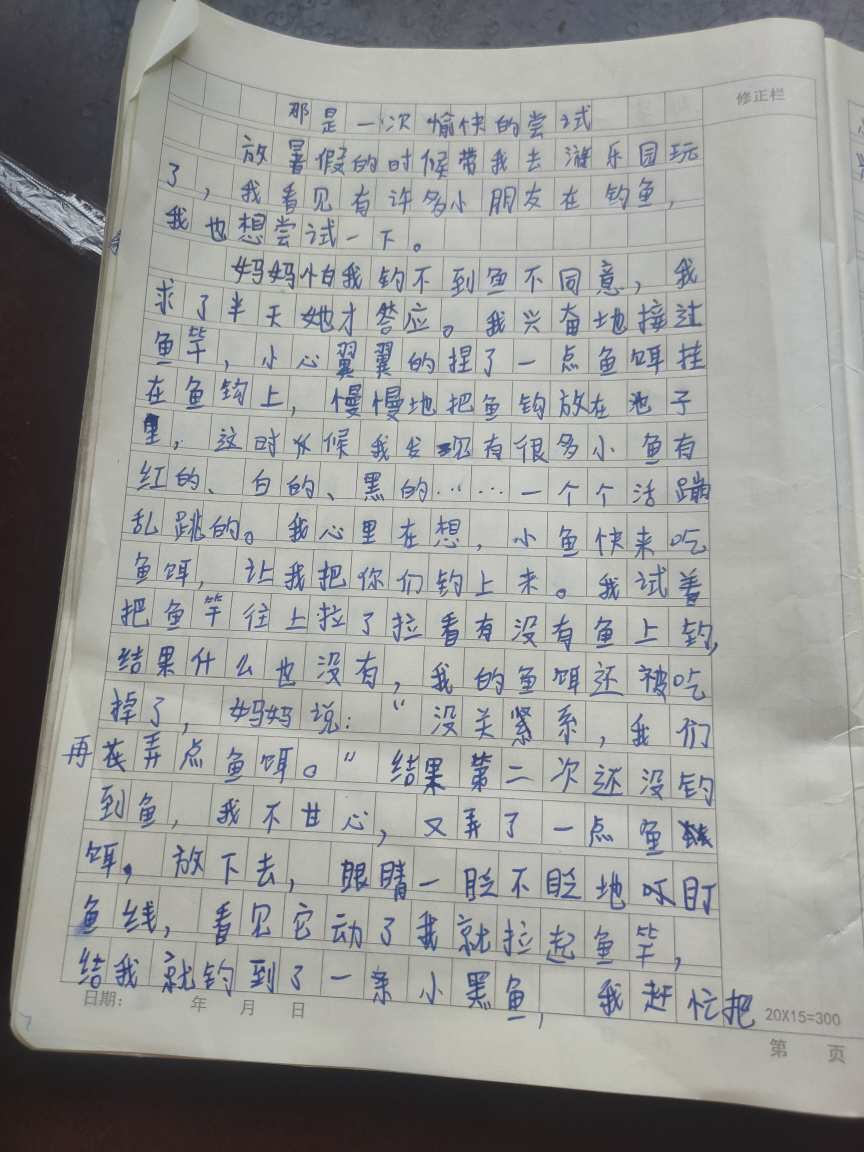 修正栏
那是一次愉快的尝试
放暑假的时候带我去游乐园玩
了，我看见有许多小朋友在钓鱼，
我也想尝试一下。
妈妈怕我钓不到鱼不同意，我
求了半天她才答应。我兴奋地接过
鱼竿，小心翼翼的捏了一点鱼饵挂
在鱼钩上，慢慢地把鱼钩放在池子
里，这时候我发现有很多小鱼有
红的、白的、黑的……一个个活蹦
乱跳的。我心里在想，小鱼快来吃
鱼饵，让我把你们钓上来。我试着
把鱼竿往上拉了拉看有没有鱼上钓，
结果什么也没有，我的鱼饵还被吃
掉了，妈妈说：“没关紧系，我们
再在弄点鱼饵。”结果第二次还没钓
到鱼，我不甘心，又弄了一点鱼
饵，放下去，眼睛一眨不眨地盯
鱼线，看见它动了我就拉起鱼竿，
结我就钓到了一条小黑鱼，我赶忙把
日期： 年 月 日
20X15=300
第 页
7